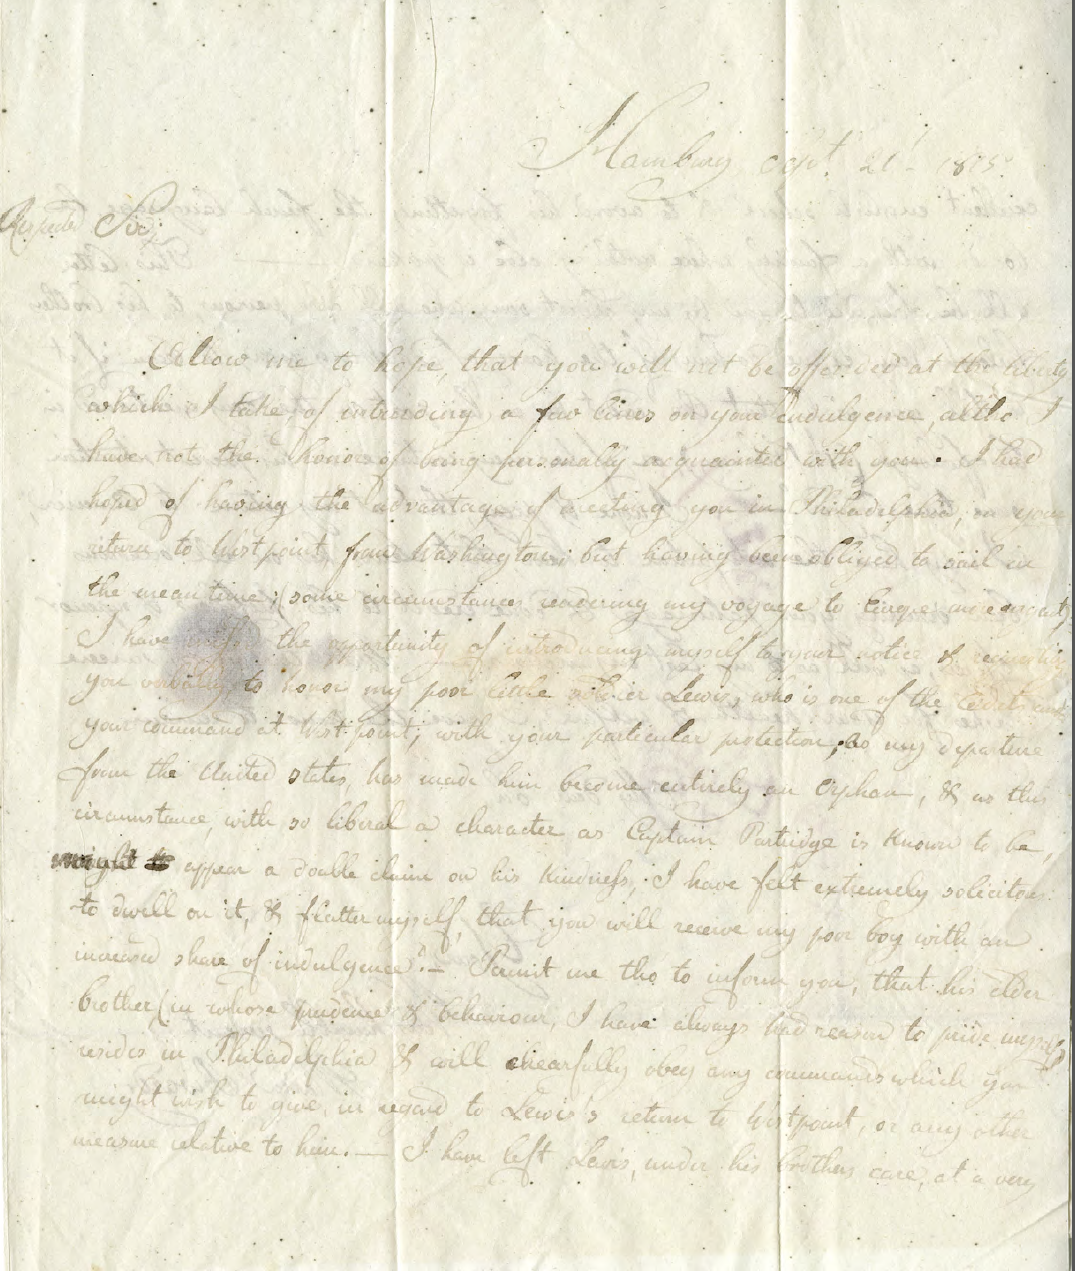 Hamburg Sept. 21t. 1815.
Respected Sir;
Allow me to hope, that you will not be offended at the liberty
which I take, of intruding a few lines on your indulgence, altho I
have not the honor of being personally acquainted with you. I had
hoped of having the advantage of meeting you in Philadelphia, on your
return to Westpoint from Washington; but having been obliged to sail in
the mean time; (some circumstances rendering my voyage to Europe
I have the opportunity of introducing myself to your notice &
you verbally, to honor my poor little Lewis, who is one of the Cadets
your command at Westpoint, with your particular protection; as my departure
from the United states, has made him become entirely an Orphan, & as this
circumstance, with so liberal a character as Captain Partridge is known to be,
might appear a double claim on his kindness, I have felt extremely solicitous
to dwell on it, & flatter myself, that you will receive my poor boy with an
increased share of indulgence. — Permit me tho to inform you, that his elder
brother (in whose prudence & behaviour, I have always had reason to pride myself)
resides in Philadelphia & will chearfully obey any commands which you
might wish to give, in regard to Lewis's return to Westpoint, or any other
measure relative to him. — I have left Lewis, under his brothers care, at a very